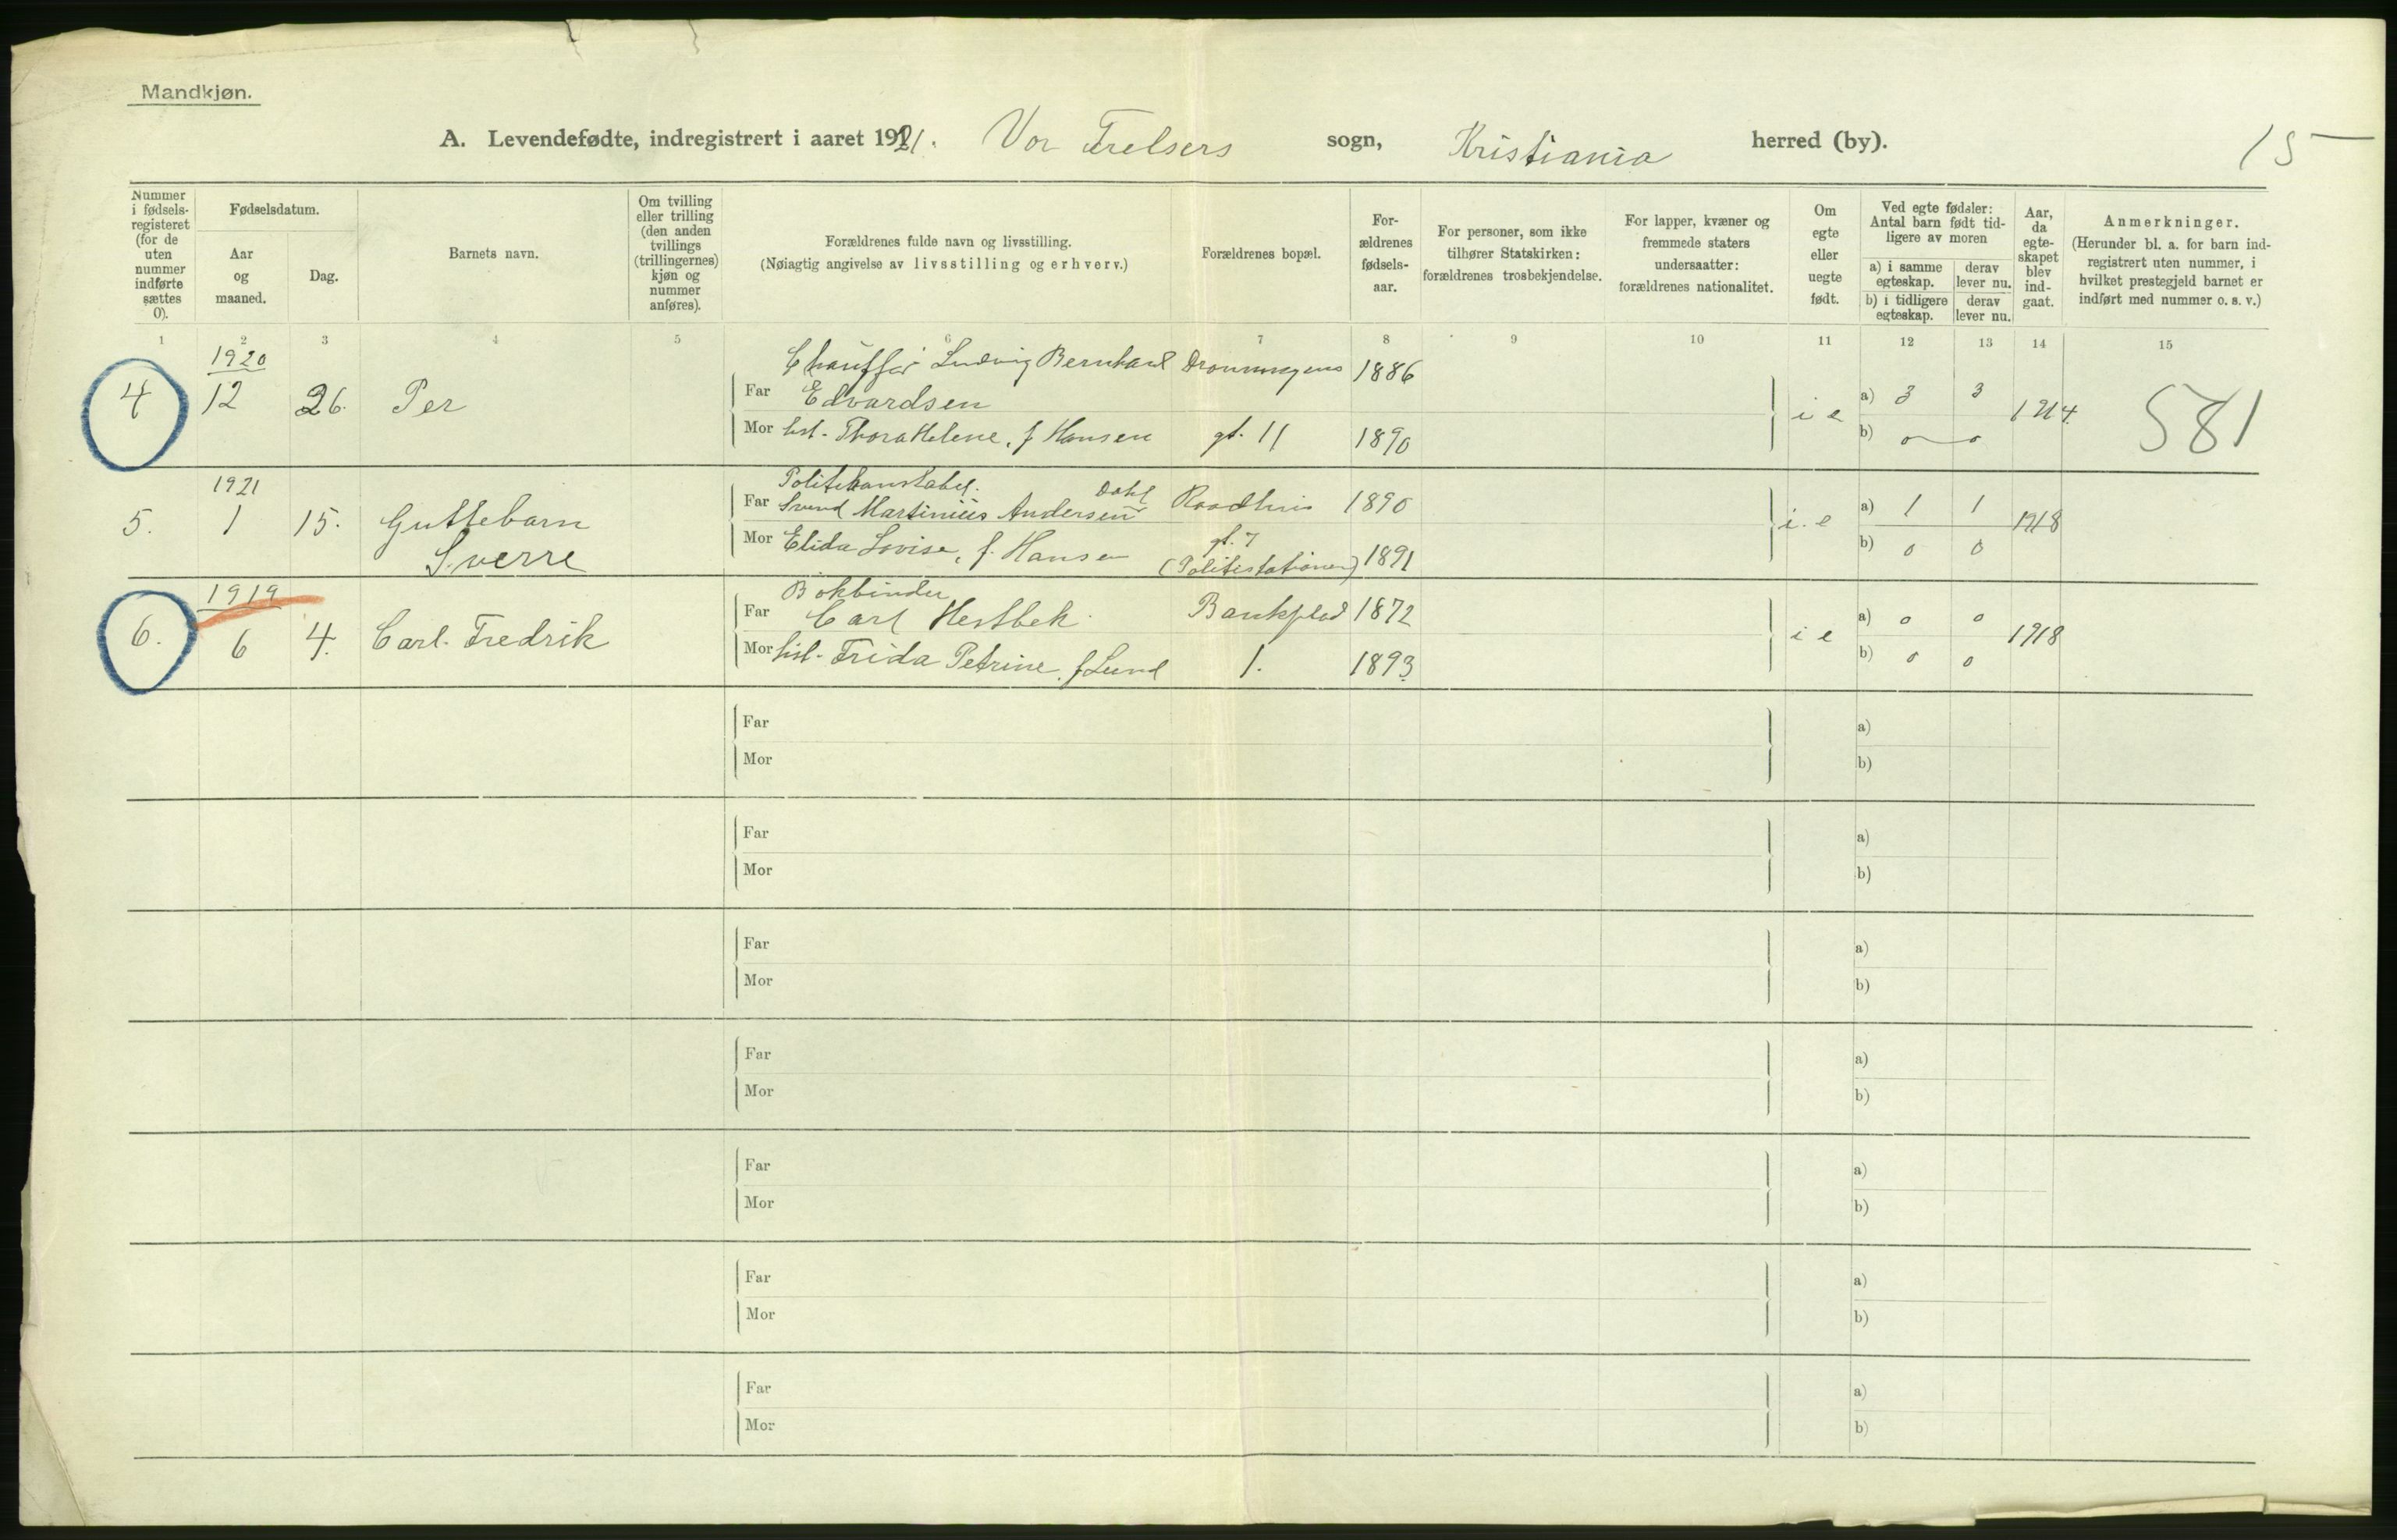 Mandkjøn.
A. Levendefødte, indregistrert i aaret 1921. Vor Frelsers sogn, Kristiania herred (by).
15
Nummer i fødsels-registeret (for de uten nummer indførte sættes 0).
Fødselsdatum.
Aar og maaned.
Dag.
Barnets navn.
Om tvilling eller trilling (den anden tvillings (trillingernes) kjøn og nummer anføres).
Forældrenes fulde navn og livsstilling.
(Nøiagtig angivelse av livsstilling og erhverv.)
Forældrenes bopæl.
For-ældrenes fødsels-aar.
For personer, som ikke tilhører Statskirken: forældrenes trosbekjendelse.
For lapper, kvæner og fremmede staters undersaatter: forældrenes nationalitet.
Om egte eller uegte født.
Ved egte fødsler: Antal barn født tid-ligere av moren
a) i samme egteskap.
derav lever nu.
b) i tidligere egteskap.
derav lever nu.
Aar, da egte-skapet blev ind-gaat.
Anmerkninger.
(Herunder bl. a. for barn ind-registrert uten nummer, i hvilket prestegjeld barnet er indført med nummer o. s. v.)
1 2 3 4 5 6 7 8 9 10 11 12 13 14 15
1920
4 12 26. Per
Chauffør Ludvig Bernhard Dronningens 1886
Far Edvardsen
Mor hst. Thora Helene, f Hansen gt. 11 1890
i e a) 3 3 1914
b) 0 0
581
1921
5. 1 15. Guttebarn
Sverre
Politikonstabel.
Dahl
Far Martinius Andersen Raadhus 1890
gt. 7
Mor Elida Lovise, f. Hansen (Politistationen) 1891
i. e a) 1 1 1918
b) 0 0
1919
6. 6 4. Carl Fredrik
Bokbinder
Far Carl Hestbek Bankplad 1872
Mor hst. Frida Petrine, f Lund 1. 1893
i e a) 0 0 1918
b) 0 0
Far a)
Mor b)
Far a)
Mor b)
Far a)
Mor b)
Far a)
Mor b)
Far a)
Mor b)
Far a)
Mor b)
Far a)
Mor b)